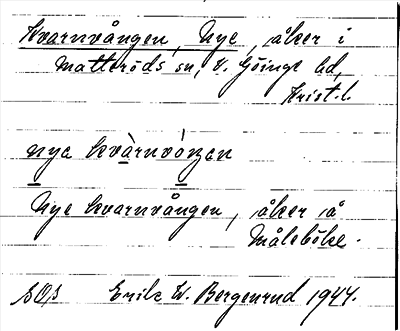 Kvarnvången, Nye, åker i
Matteröds sn, V. Göinge hd,
Krist. l.
nya kvàrnvóŋen
Nye kvarnvången, åker å
Måleböke.
SOS Erik W. Bergenrud 1944.